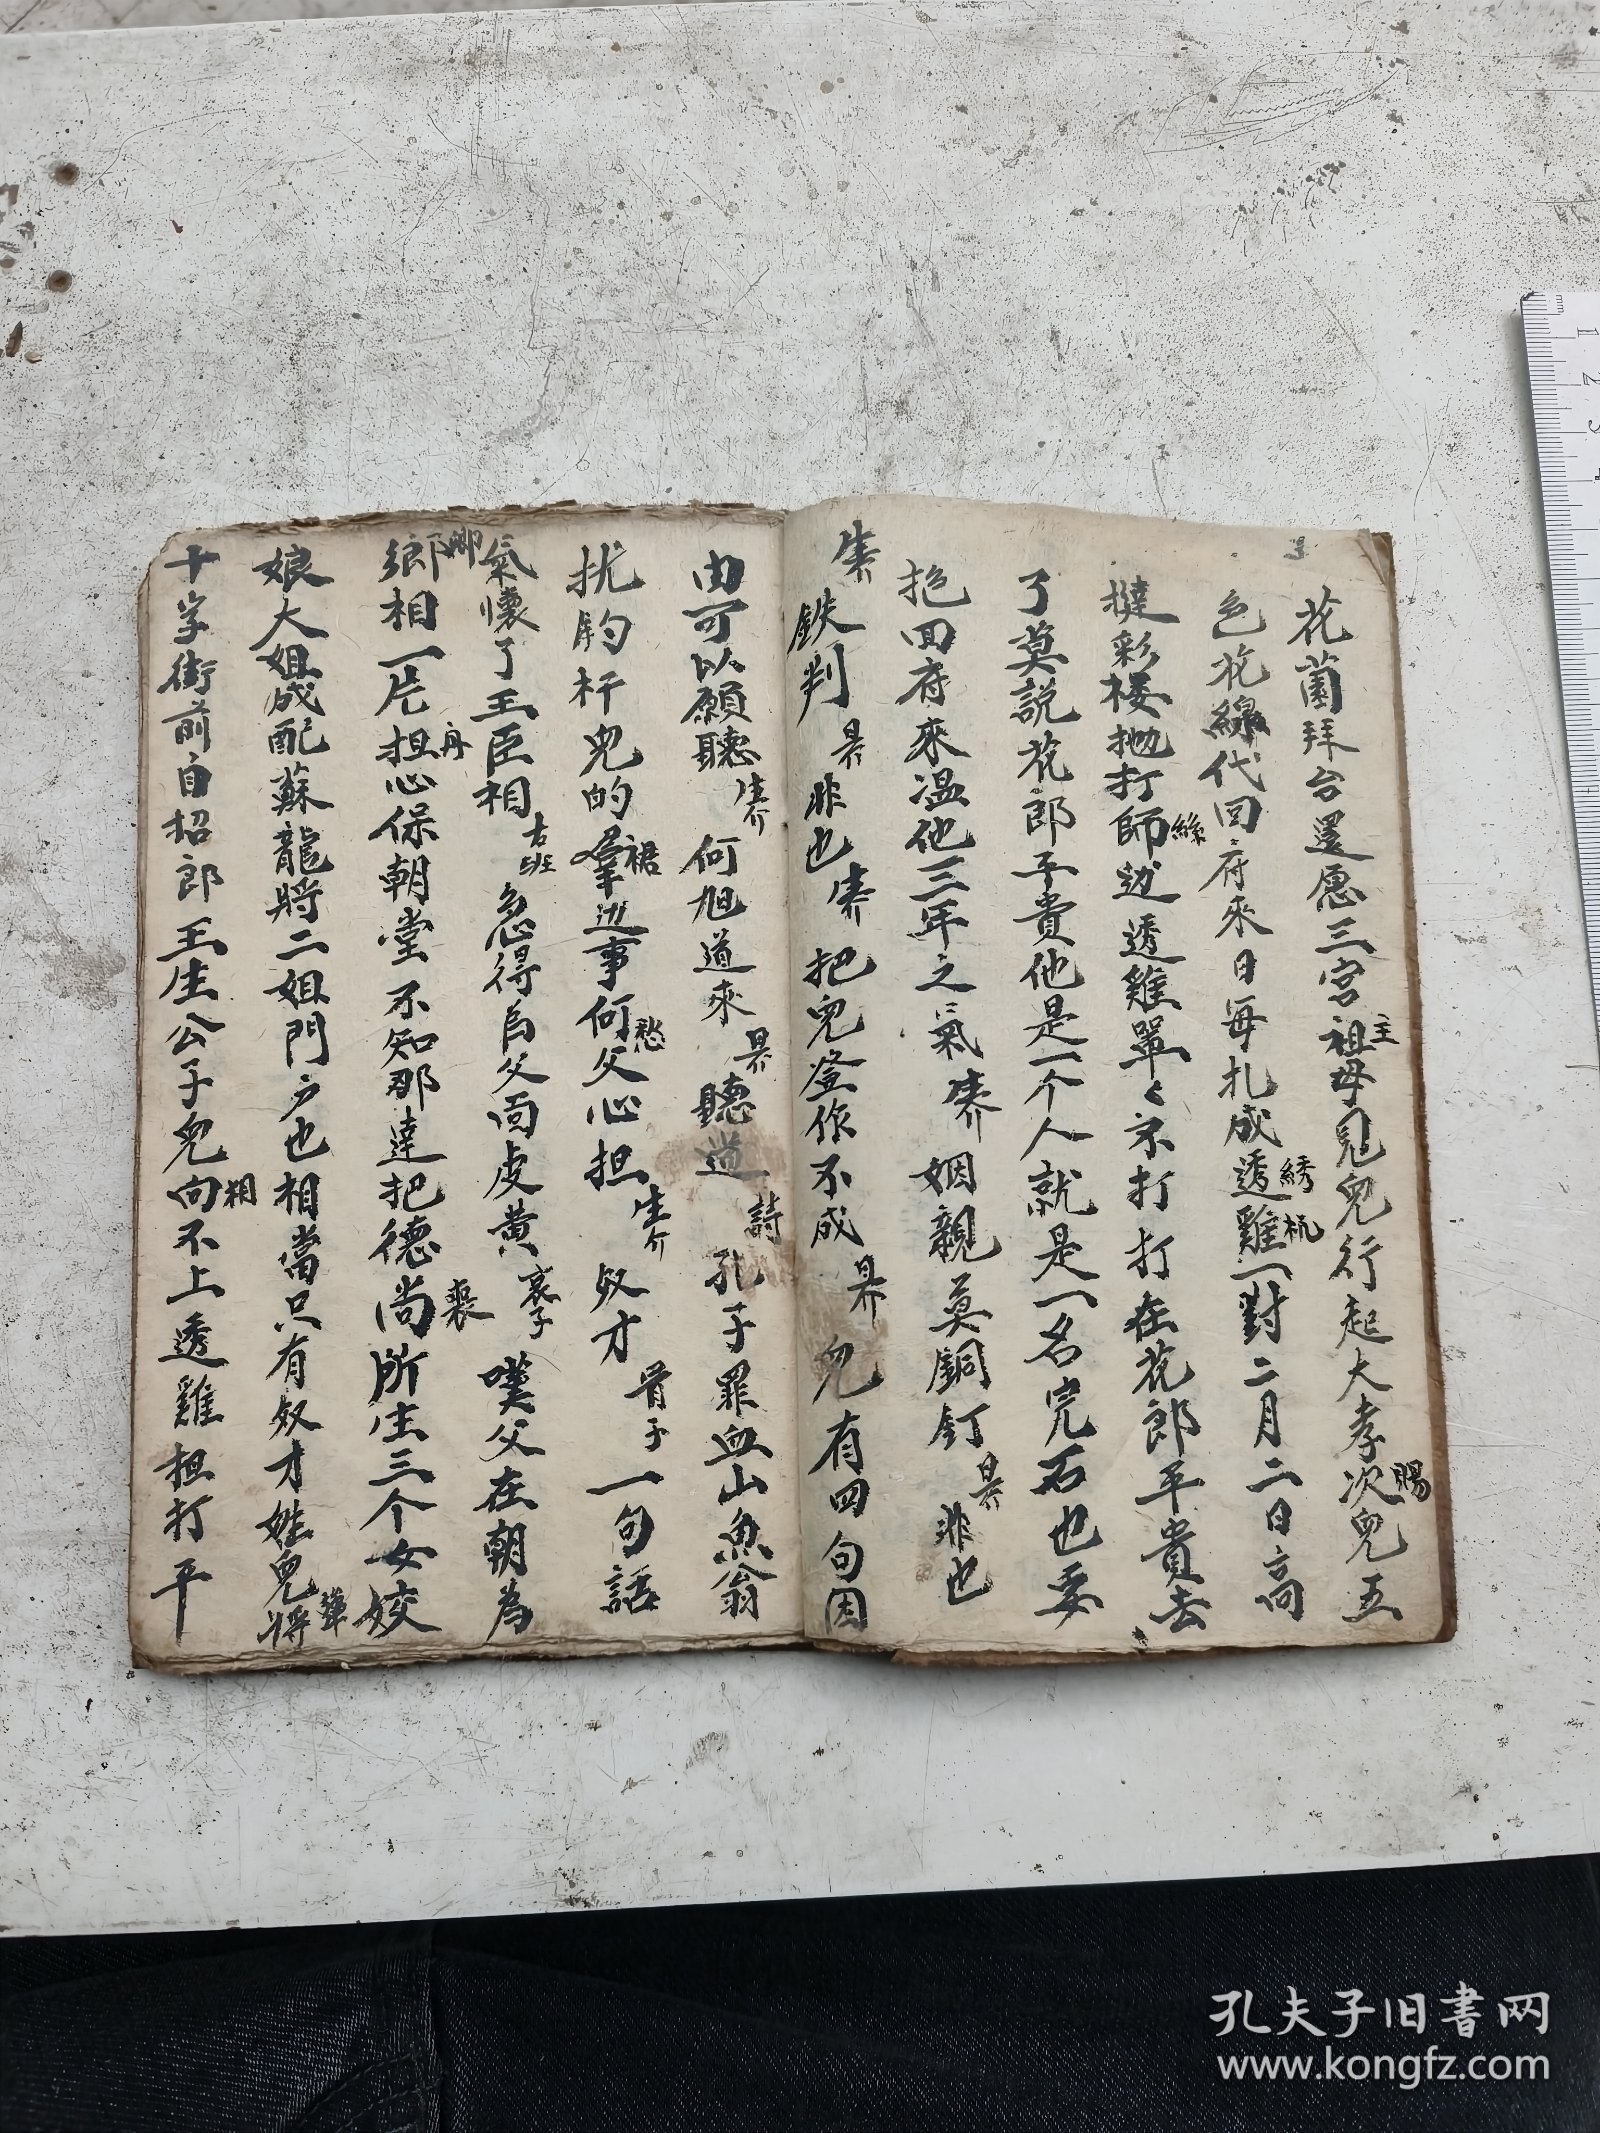 花園拜台還愿三宮祖主母見兒行起大孝次賜兒五
色花線代回府來日每扎成透綉雞杭一對二月二日高
撻彩楼拋打師絲边透雞單々不打打在花郎平貴去
了莫説花郎平貴他是一个人就是一名完石也要
抱回府來溫他三年之氣 姻親莫銅釘 非也
鉄判 非也 把兒登作不成 兒有四句因
由可以願聽 何旭道來 聽道 詩 孔子罪血山魚翁
扰的杆兒的羣裙边事何愁父心担 生介 奴才 一句話
氣懷了王臣相 古班 急得為父面皮黄 衮子 嘆父在朝為
鄉卿相一片担丹心保朝堂不知那達把德尚裴所生三个女姣
娘大姐成配蘇龍將二姐門户也相當只有奴才姓兒將
十字街前自招郎王生公子兒向相不上透雞担打平
孔夫子旧書网
www.kongfz.com
1 2 3 4